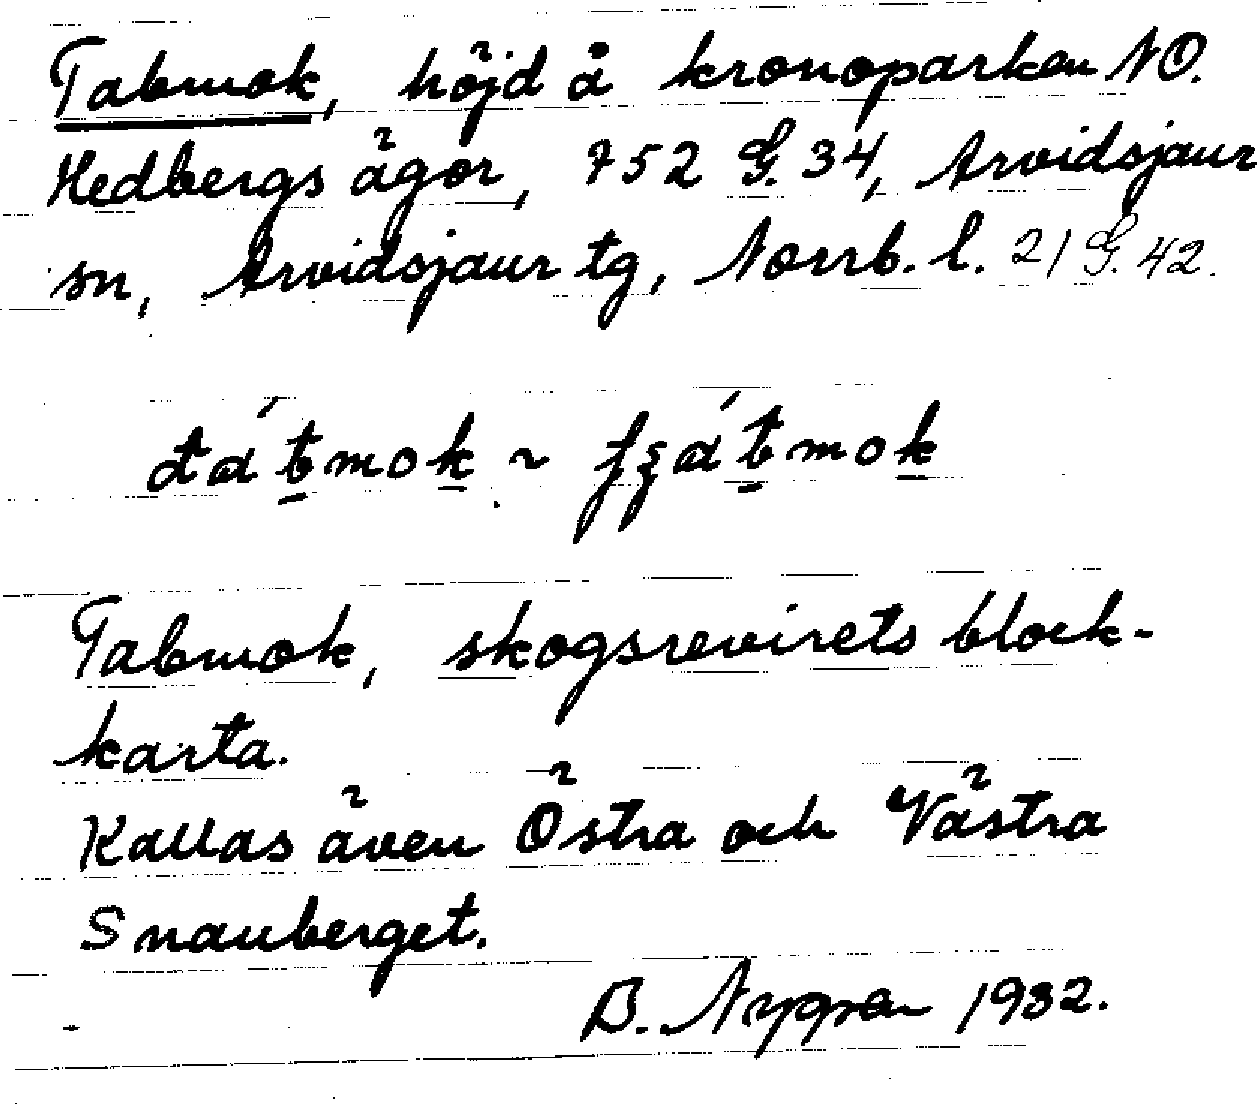 Tabmok, höjd å kronoparken NO.
Hedbergs ägor, 752 G. 34, Arvidsjaur
sn, Arvidsjaur tg, Norrb. l. 21 G. 42.
Tabmok, skogsrevirets block-
karta.
Kallas även Östra och Västra
Snauberget.
B. Nygren 1932.